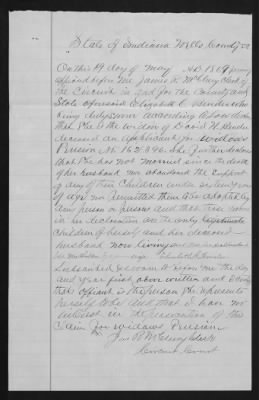 State of Indiana Wells County SS
On this 19 day of May A.D. 1869 personally
appeared before me James R. McCleery Clerk of
the Circuit in and for the County and
State aforesaid Elizabeth
being duly sworn according to law deposes
that she is the widow of David H.
deceased an applicant for
Pension No 162,396. She further declares
that she has not married since the death
of her husband nor abandoned the support
of any of their Children under sixteen years
of age nor permitted them to be adopted by
any person or persons and that those
in her declaration are the only
children of herself and her deceased
husband now living
Subscribed & sworn to before me the day
and year first above written and I certify
that affiant is the person she represents
herself to be and that I have no
interest in the prosecution of this
Claim for widows Pension
Jas R McCleery Clerk
Circuit Court